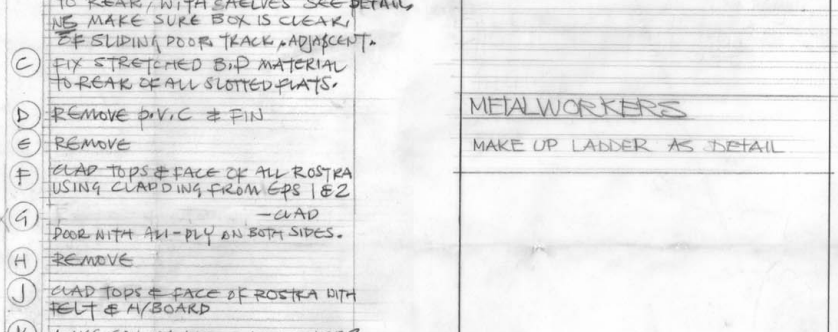 TO REAR, WITH SHELVES SEE DETAIL,
NB MAKE SURE BOX IS CLEAR,
OF SLIDING DOOR TRACK, ADJACENT.
C FIX STRETCHED B.P MATERIAL
TO REAR OF ALL SLOTTED FLATS.
D REMOVE P.V.C & FIN
E REMOVE
F CLAD TOPS & FACE OF ALL ROSTRA
USING CLADDING FROM EPS 1 & 2
G —CLAD
DOOR WITH ALI-PLY ON BOTH SIDES.
H REMOVE
J CLAD TOPS & FACE OF ROSTRA WITH
FELT & H/BOARD
METALWORKERS
MAKE UP LADDER AS DETAIL